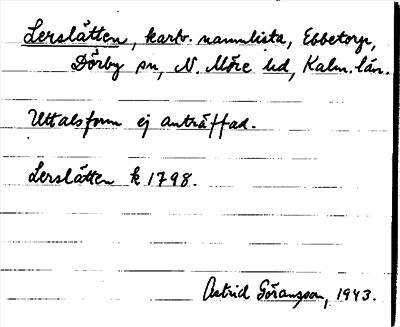 Lerslätten, kartv. namnlista, Ebbetorp,
Dörby sn, N. Möre hd, Kalm. län.
Uttalsform ej anträffad.
Lerslätten k 1798.
Astrid Göransson, 1943.